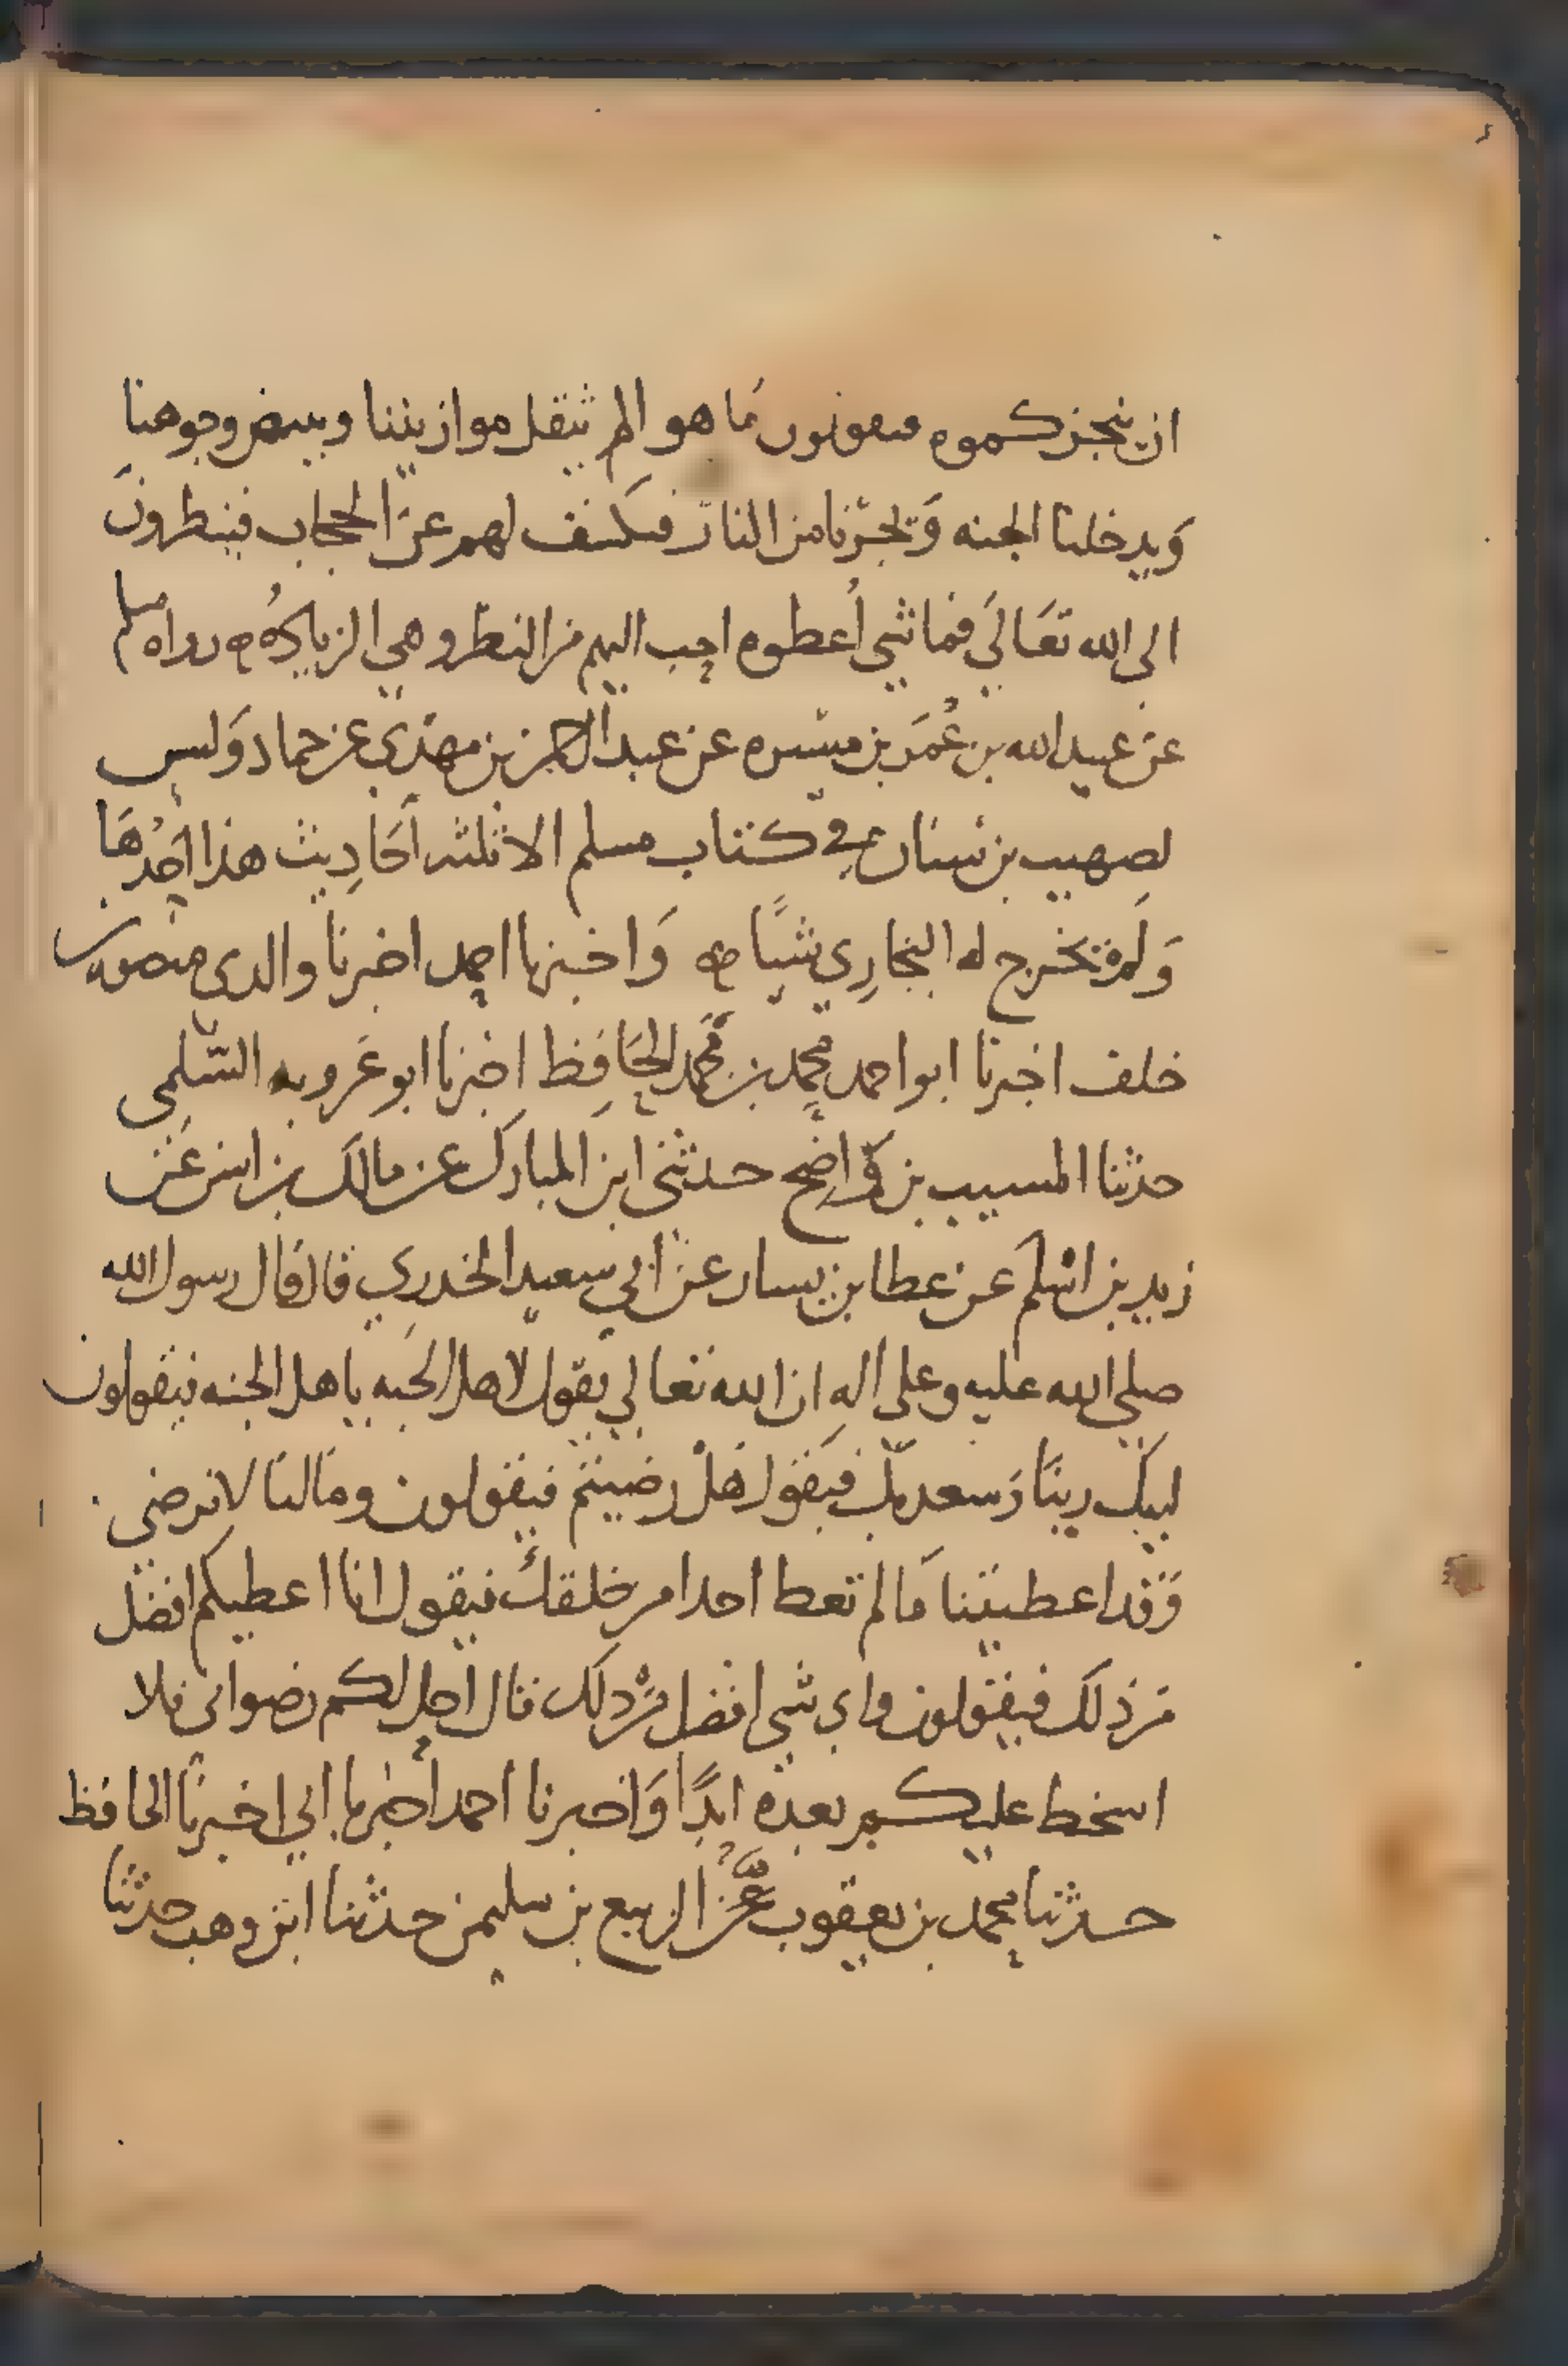 ان ينجزكموه فيقولون ما هو الم يثقل موازيننا ويبيض وجوهنا
وَيدخلنا الجنه وَيجرنا من النار فيكشف لهم عن الحجاب فينظرون
الى الله تعَالَي فما شي أعطوه احب اليهم من النظر وهي الزيادهُ ه رواه مسلم
عن عبيد الله بن عُمَر بن ميسره عن عبد الرحمن بن مهدي عن حماد وَليس
لصهيب بن سنان في كتاب مسلم الا ثلثه أحَادِيث هذا احَدُهَا
وَلم يخرج له البخارِي شيًا ه وَاخبرنا احمد اخبرنا والدى منصور بن
خلف اخبرنا ابو احمد محمد بن محمد الحَافِظ اخبرنا ابو عَروبه السّلمى
حدثنا المسيب بن وَاضِح حدثنى ابن المبارَك عن مالك بن انس عَن
زيد بن اسْلَم عن عطا بن يسار عن ابي سعيد الخدرِي قال قال رسول الله
صلى الله عليه وعلى اله ان الله تعالي يقول لاهل الجَنه ياهل الجنه فيقولون
لبيك ربنَا وَسعديك فيَقول هَلْ رضيتم فيقولون ومَا لنا لا نرضي
وَقد اعطيتنا مَا لم تعط احدا من خلقك فيقول انا اعطيكم افضل
من ذلك فيقولون واي شي افضل من ذلك قال احل لكم رضوانى فلا
اسخط عليكم بعده ابدًا وَاخبرنا احمد أخبرنا ابي اخبرنا الحافظ
حدثنا محمد بن يعقوب عن الربيع بن سليمن حدثنا ابن وهب حدثنا